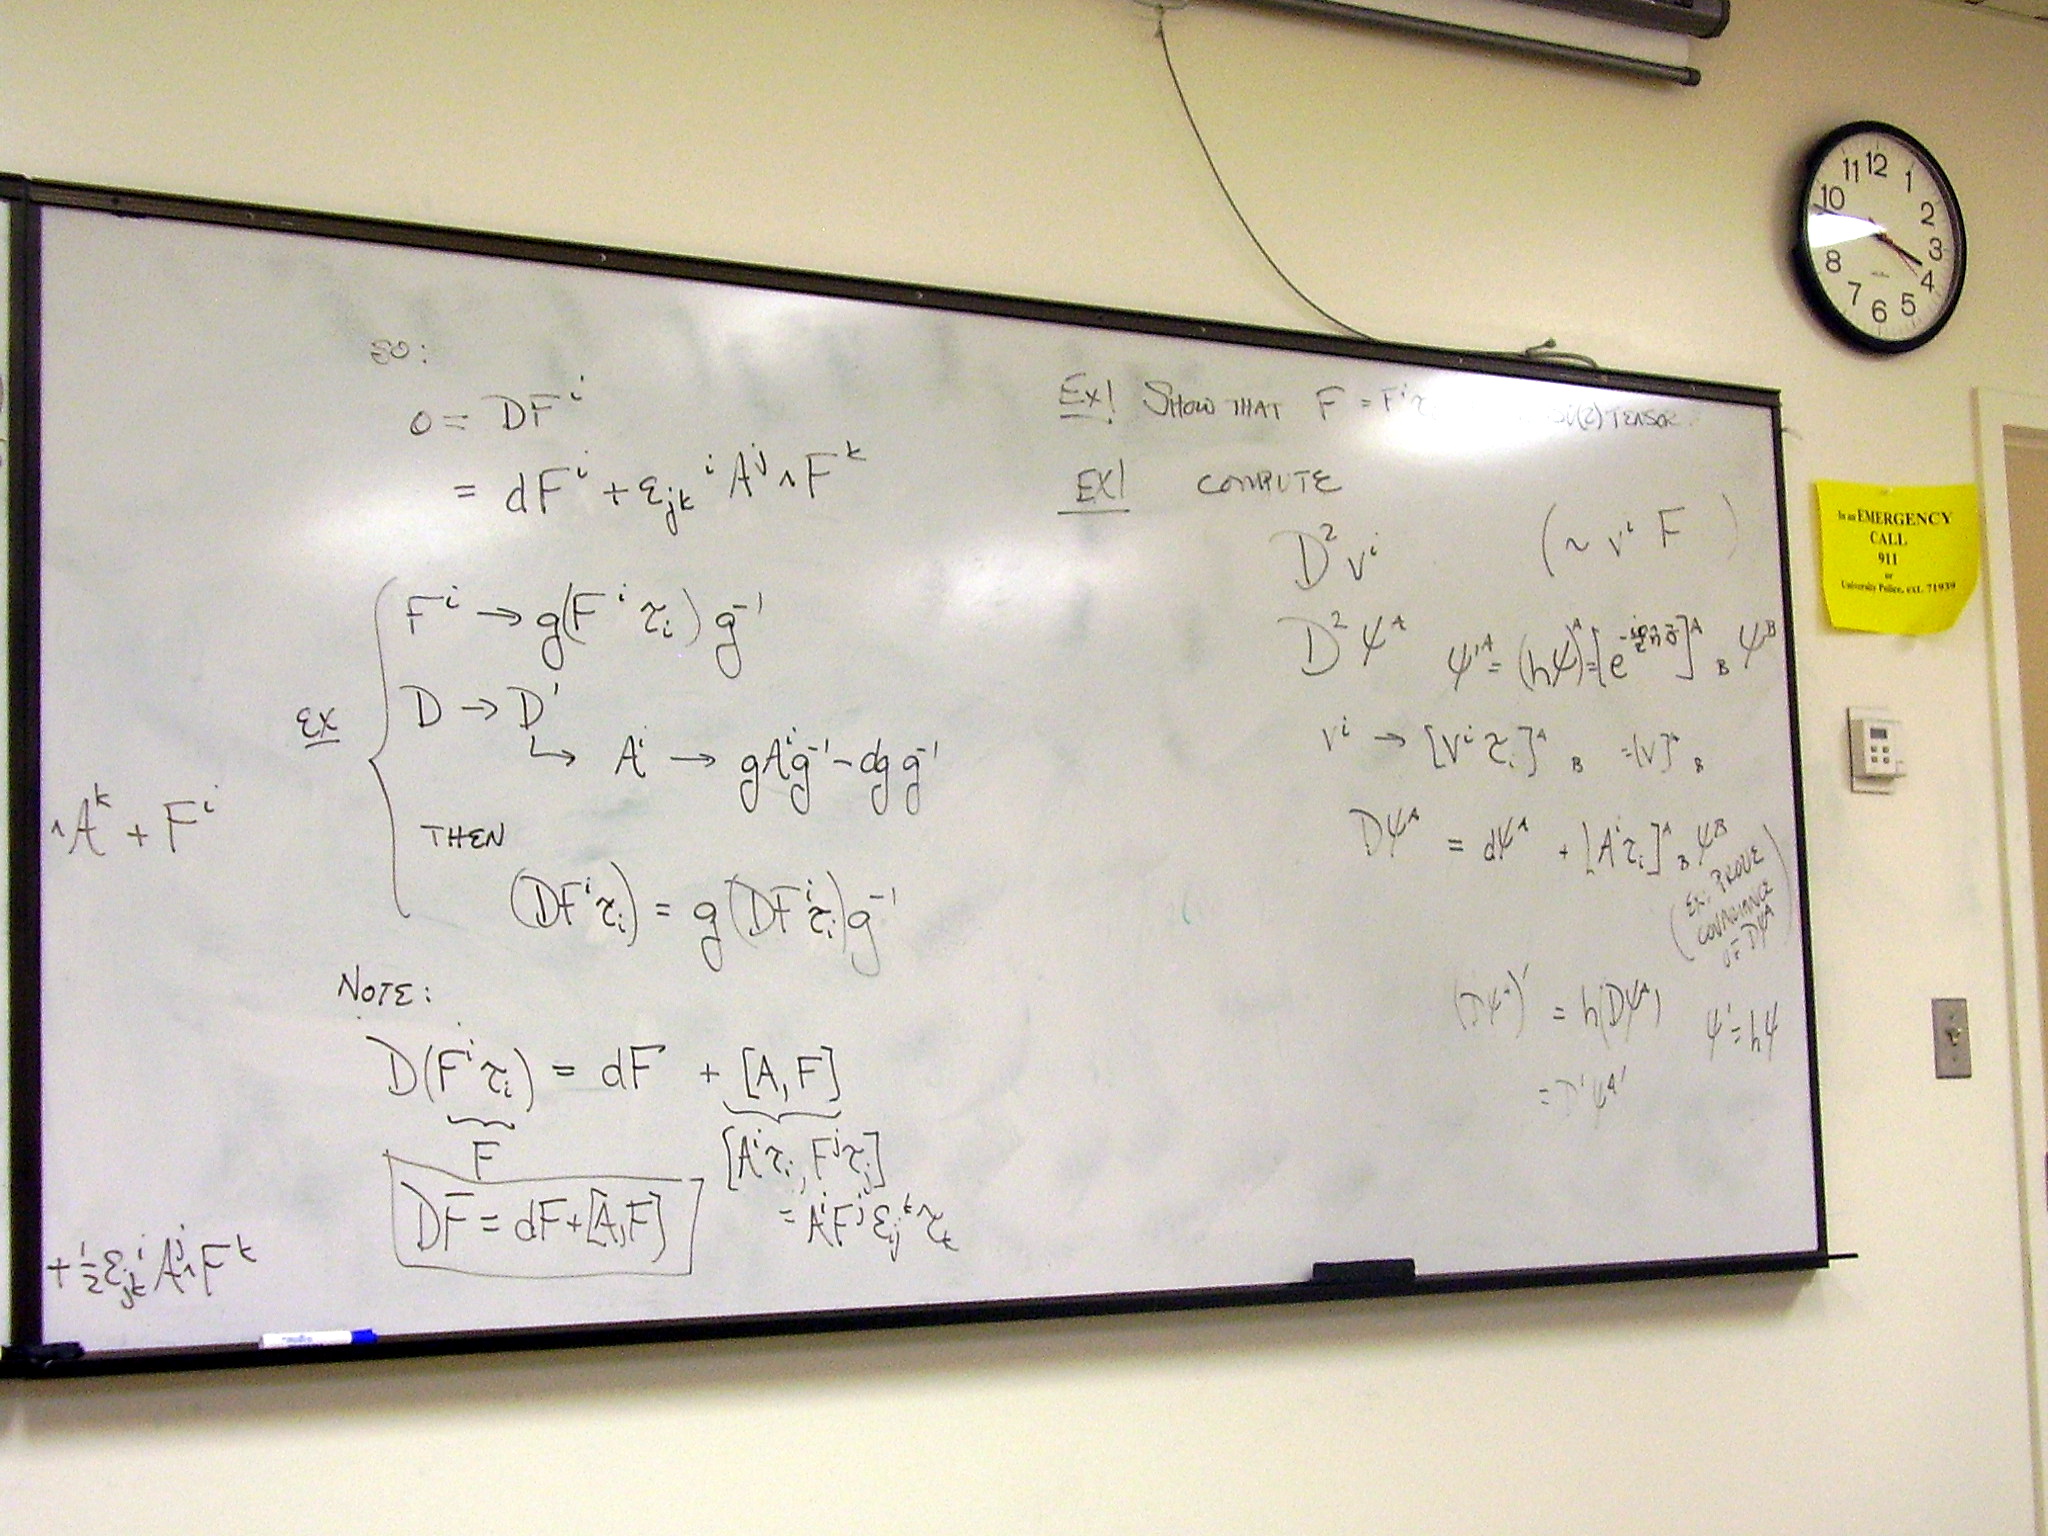 SO:
0 = DF^i
= dF^i + ε_{jk}^i A^j ∧ F^k
EX
F^i → g(F^i τ_i) g^{-1}
D → D'
↳ A^i → gA^i g^{-1} - dg g^{-1}
THEN
(DF^i τ_i) = g(DF^i τ_i)g^{-1}
NOTE:
D(F^i τ_i) = dF + [A, F]
F
[A^i τ_i, F^j τ_j]
= A^i F^j ε_{ij}^k τ_k
DF = dF + [A, F]
∧A^k + F^i
+ ½ ε_{jk}^i A^j ∧ F^k
Ex! SHOW THAT F = F^i τ TENSOR
EX! COMPUTE
D² v^i (~ v^i F)
D² ψ^A ψ'^A = (hψ)^A = [e ]^A_B ψ^B
v^i → [v^i τ_i]^A_B = [v]^A_B
Dψ^A = dψ^A + [A^i τ_i]^A_B ψ^B
(EX: PROVE
COVARIANCE
OF Dψ^A)
(Dψ^A)' = h(Dψ^A) ψ' = hψ
= D'ψ^A'
11 12 1
10 2
3
8 4
7 6 5
In an EMERGENCY
CALL
911
or
University Police, ext. 71939